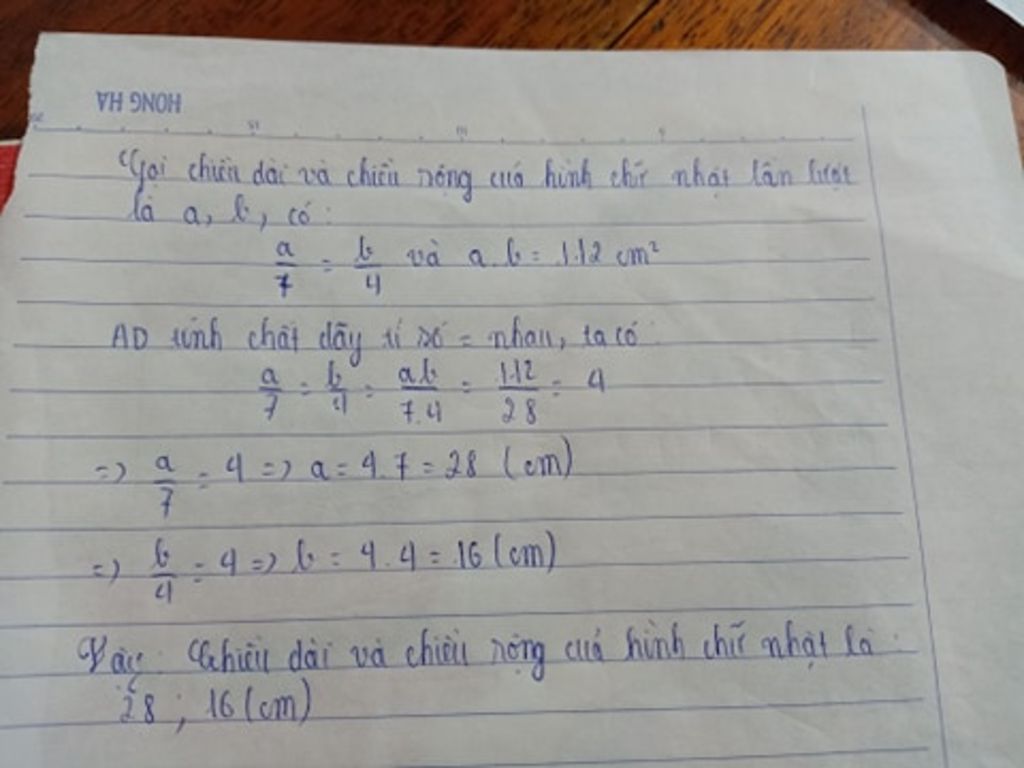 HONG HA
15 10 5
Gọi chiều dài và chiều rộng của hình chữ nhật lần lượt
là a, b, có:
a/7 = b/4 và a.b = 112 cm²
AD tính chất dãy tỉ số = nhau, ta có:
a/7 = b/4 = ab/7.4 = 112/28 = 4
=> a/7 = 4 => a = 4.7 = 28 (cm)
=> b/4 = 4 => b = 4.4 = 16 (cm)
Vậy: Chiều dài và chiều rộng của hình chữ nhật là:
28 ; 16 (cm)